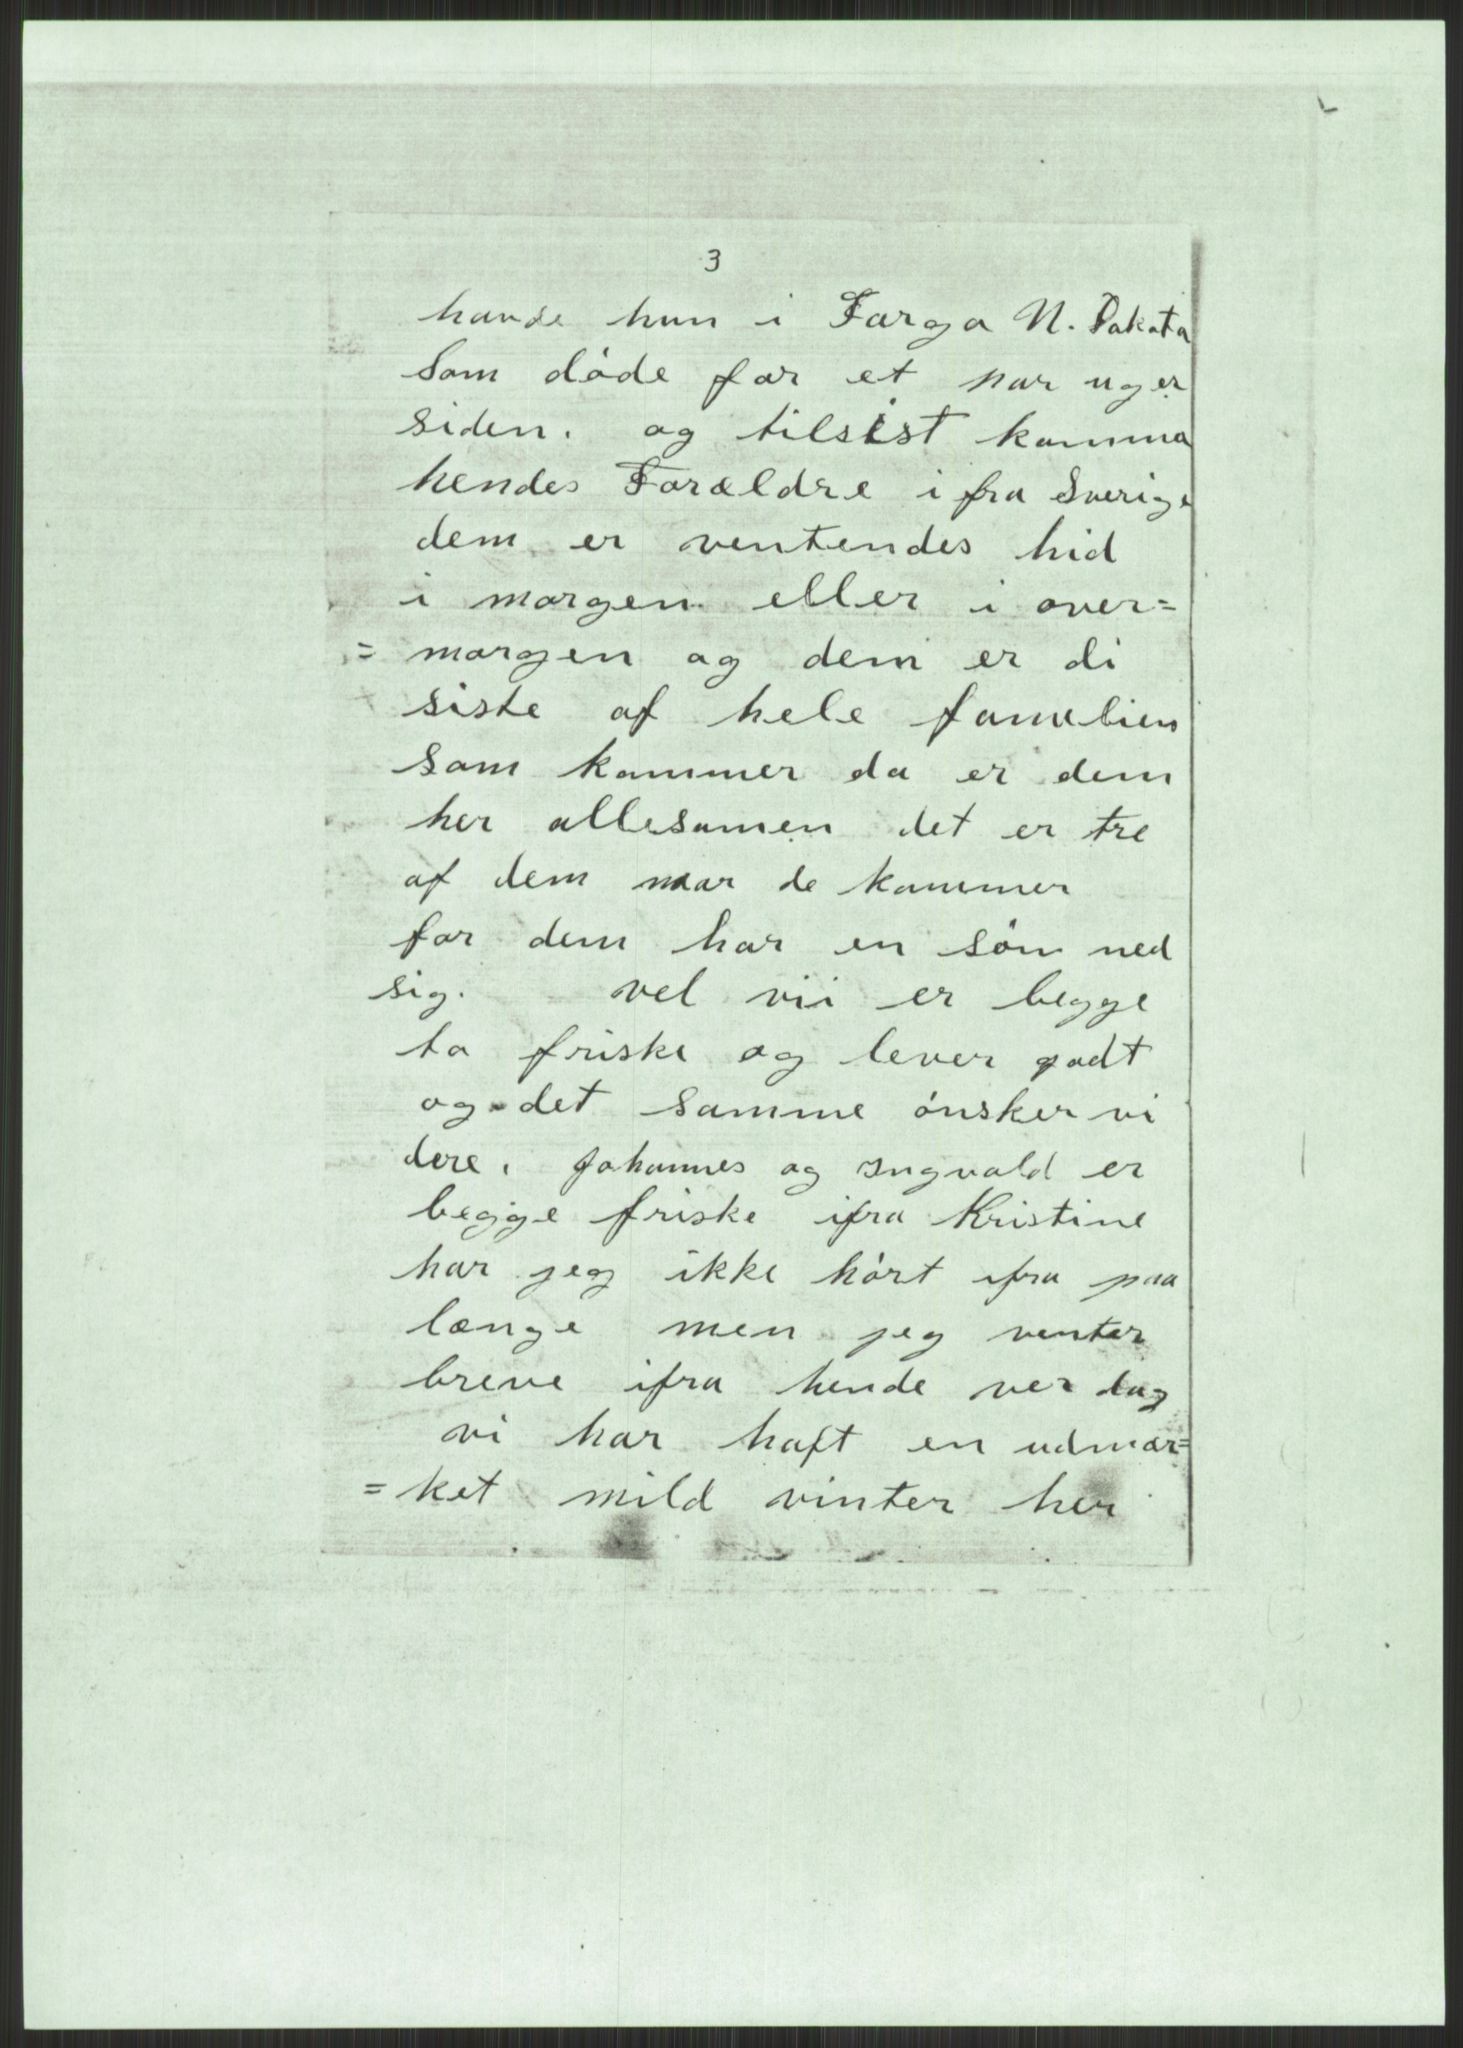 3
havde hun i Fargo N. Dakota
som döde for et par uger
siden. og tilsist komma
hendes Forældre i fra Sverige
dem er ventendes hid
i morgen eller i over=
= morgen og dem er di
siste af hele famelien
som kommer da er dem
her allesamen det er tre
af dem naar de kommer
for dem har en sön med
sig. vel vii er begge
to friske og lever godt
og det samme önsker vi
dere. Johannes og Ingvald er
begge friske ifra Kristine
har jeg ikke hört ifra paa
længe men jeg venter
breve ifra hende ver dag
vi har haft en udmær=
= ket mild vinter her